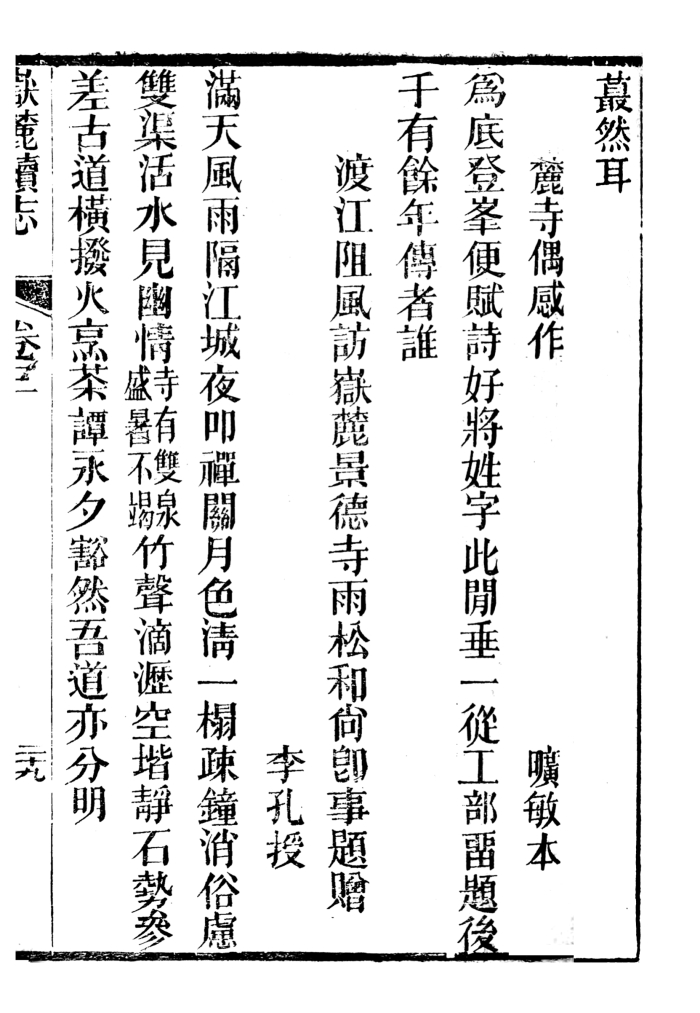 蕞然耳
麓寺偶感作　曠敏本
爲底登峯便賦詩好將姓字此閒垂一從工部畱題後
千有餘年傳者誰
渡江阻風訪嶽麓景德寺雨松和尙卽事題贈
李孔授
滿天風雨隔江城夜叩禪關月色淸一榻疎鐘消俗慮
雙渠活水見幽情寺有雙泉盛暑不竭竹聲滴瀝空堦靜石勢參
差古道橫撥火烹茶譚永夕豁然吾道亦分明
嶽麓續志　卷三　二十九